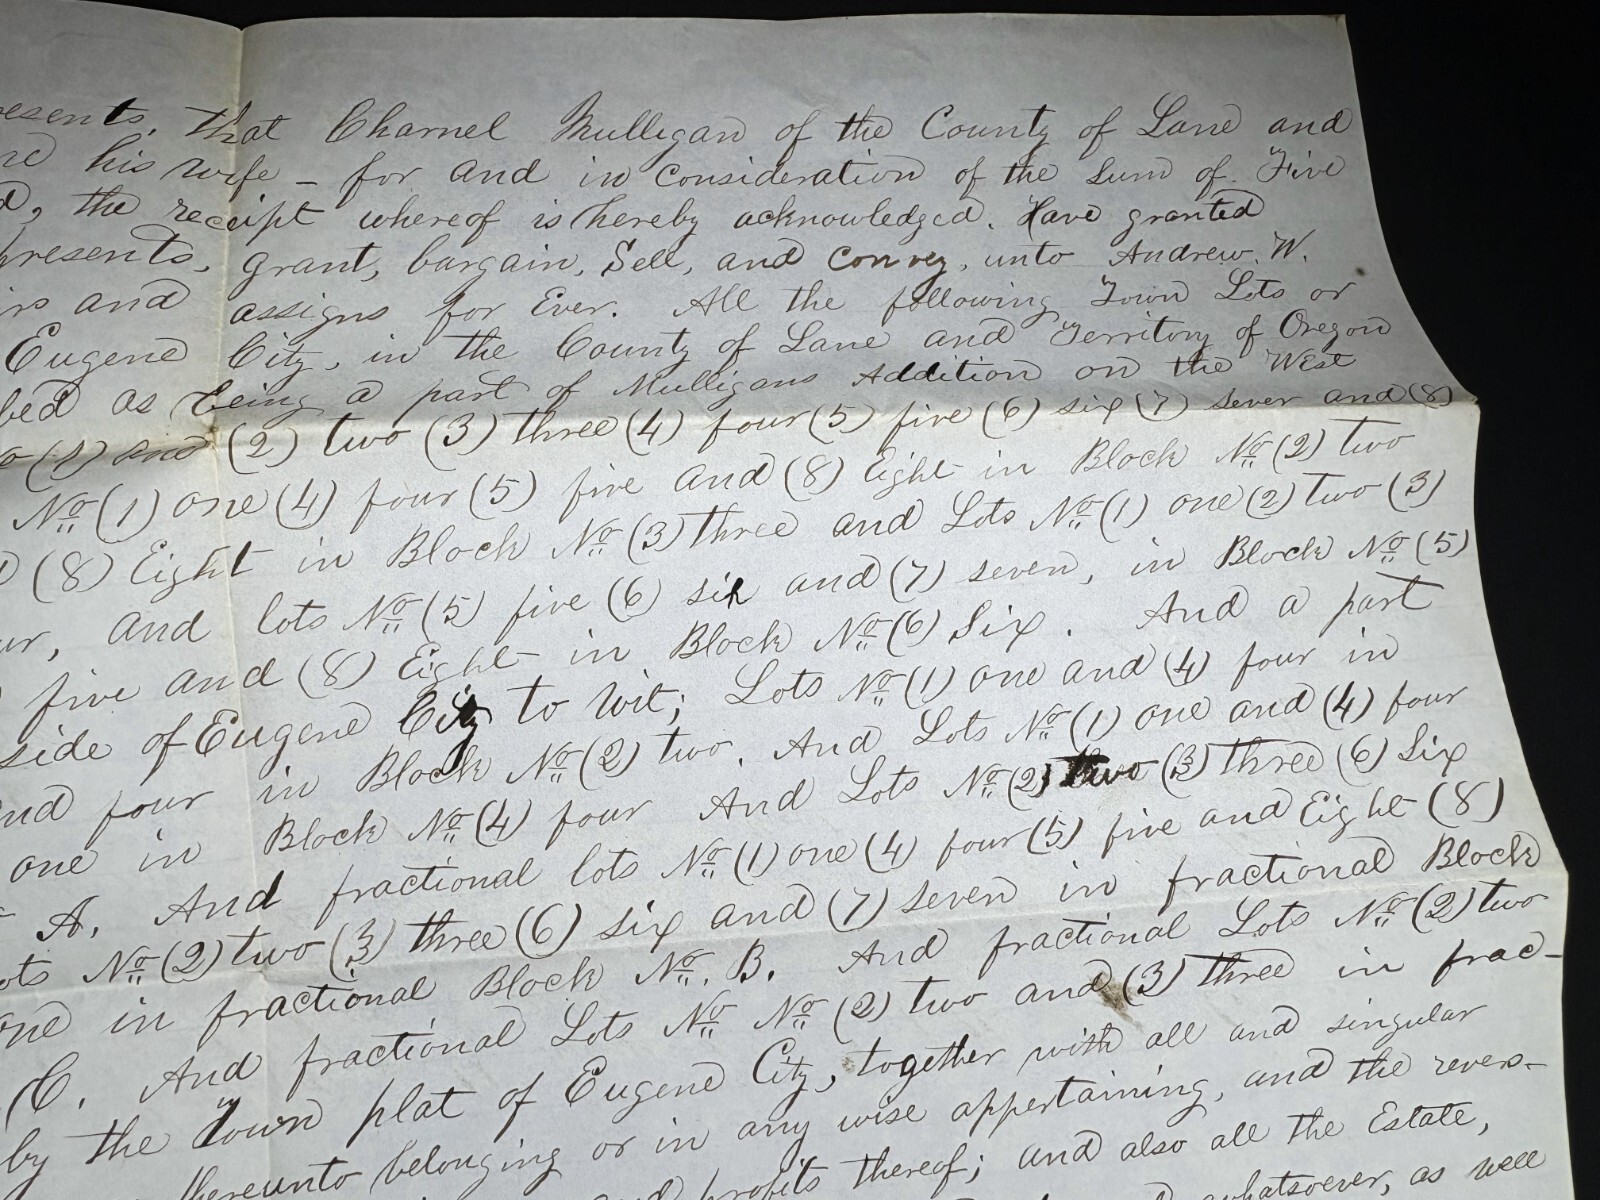 resents, that Charnel Mulligan of the County of Lane and
his wife – for and in consideration of the sum of Five
d, the receipt whereof is hereby acknowledged. Have granted
presents, grant, bargain, Sell, and convey, unto Andrew. W.
irs and assigns for Ever. All the following Town Lots or
Eugene City, in the County of Lane and Territory of Oregon
bed as being a part of Mulligans Addition on the West
o (1) and (2) two (3) three (4) four (5) five (6) six (7) seven and (8)
No (1) one (4) four (5) five and (8) Eight in Block No (2) two
(8) Eight in Block No (3) three and Lots No (1) one (2) two (3)
ur, and lots No (5) five (6) six and (7) seven, in Block No (5)
five and (8) Eight in Block No (6) Six. And a part
side of Eugene City to wit; Lots No (1) one and (4) four in
nd four in Block No (2) two. And Lots No (1) one and (4) four
one in Block No (4) four And Lots No (2) two (3) three (6) Six
A. And fractional lots No (1) one (4) four (5) five and Eight (8)
ots No (2) two (3) three (6) six and (7) seven in fractional Block
one in fractional Block No. B. And fractional Lots No (2) two
C. And fractional Lots No No (2) two and (3) three in frac-
by the Town plat of Eugene City, together with all and singular
thereunto belonging or in any wise appertaining, and the revers-
and profits thereof; and also all the Estate,
whatsoever, as well